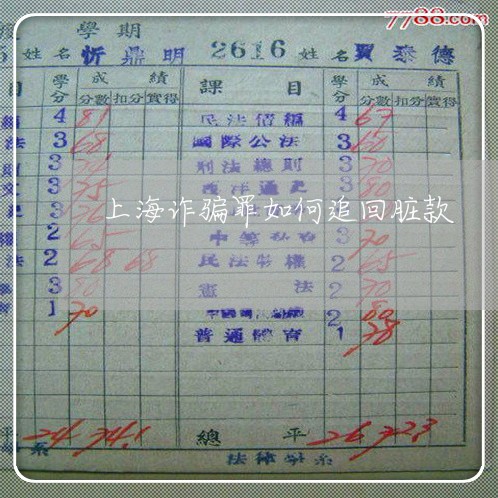 7788.com
學期
5 姓名 忻鼎明 2616 姓名 賈泰德
目 學分 成績 課目 學分 成績
分數 扣分 實得 分數 扣分 實得
4 81 民法債編 4 67
法 3 68 國際公法 3 60
3 刑法總則 3 70
3 75 西洋通史 3 80
上海诈骗罪如何追回脏款
2 65 3 70
法 2 68 68 民法物權 2 65
3 80 憲法 2 70
1 70 2 80
普通體育 1 78
平 24 74.1 總平 26 72.3
系 法律學系